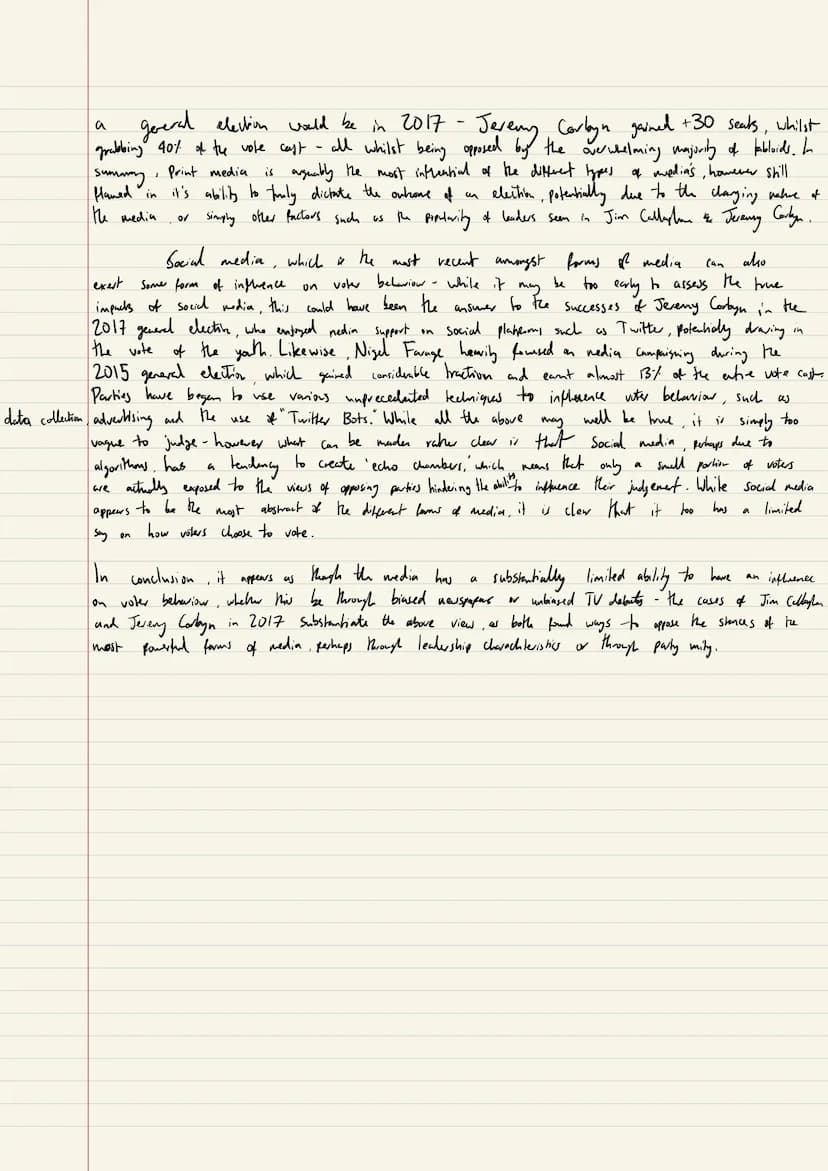 a general election would be in 2017 - Jeremy Corbyn gained +30 seats, whilst
grabbing 40% of the vote cast - all whilst being opposed by the overwhelming majority of tabloids. In
summary, Print media is arguably the most influential of the different types of media's, however still
flawed in it's ability to truly dictate the outcome of an election, potentially due to the changing nature of
the media, or simply other factors such as the popularity of leaders seen in Jim Callaghan & Jeremy Corbyn.
Social media, which is the most recent amongst forms of media can also
exert some form of influence on voter behaviour - while it may be too early to assess the true
impacts of social media, this could have been the answer to the successes of Jeremy Corbyn in the
2017 general election, who enjoyed media support on social platforms such as Twitter, potentially drawing in
the vote of the youth. Likewise, Nigel Farage heavily focused on media campaigning during the
2015 general election, which gained considerable traction and earnt almost 13% of the entire vote cast.
Parties have began to use various unprecedented techniques to influence voter behaviour, such as
data collection, advertising and the use of "Twitter Bots." While all the above may well be true, it is simply too
vague to judge - however what can be made rather clear is that social media, perhaps due to
algorithms, has a tendency to create 'echo chambers,' which means that only a small portion of voters
are actually exposed to the views of opposing parties hindering the ability to influence their judgement. While social media
appears to be the most abstract of the different forms of media, it is clear that it too has a limited
say on how voters choose to vote.
In conclusion, it appears as though the media has a substantially limited ability to have an influence
on voter behaviour, whether this be through biased newspapers or unbiased TV debates - the cases of Jim Callaghan
and Jeremy Corbyn in 2017 substantiate the above view, as both found ways to oppose the stances of the
most powerful forms of media, perhaps through leadership charachteristics or through party unity.